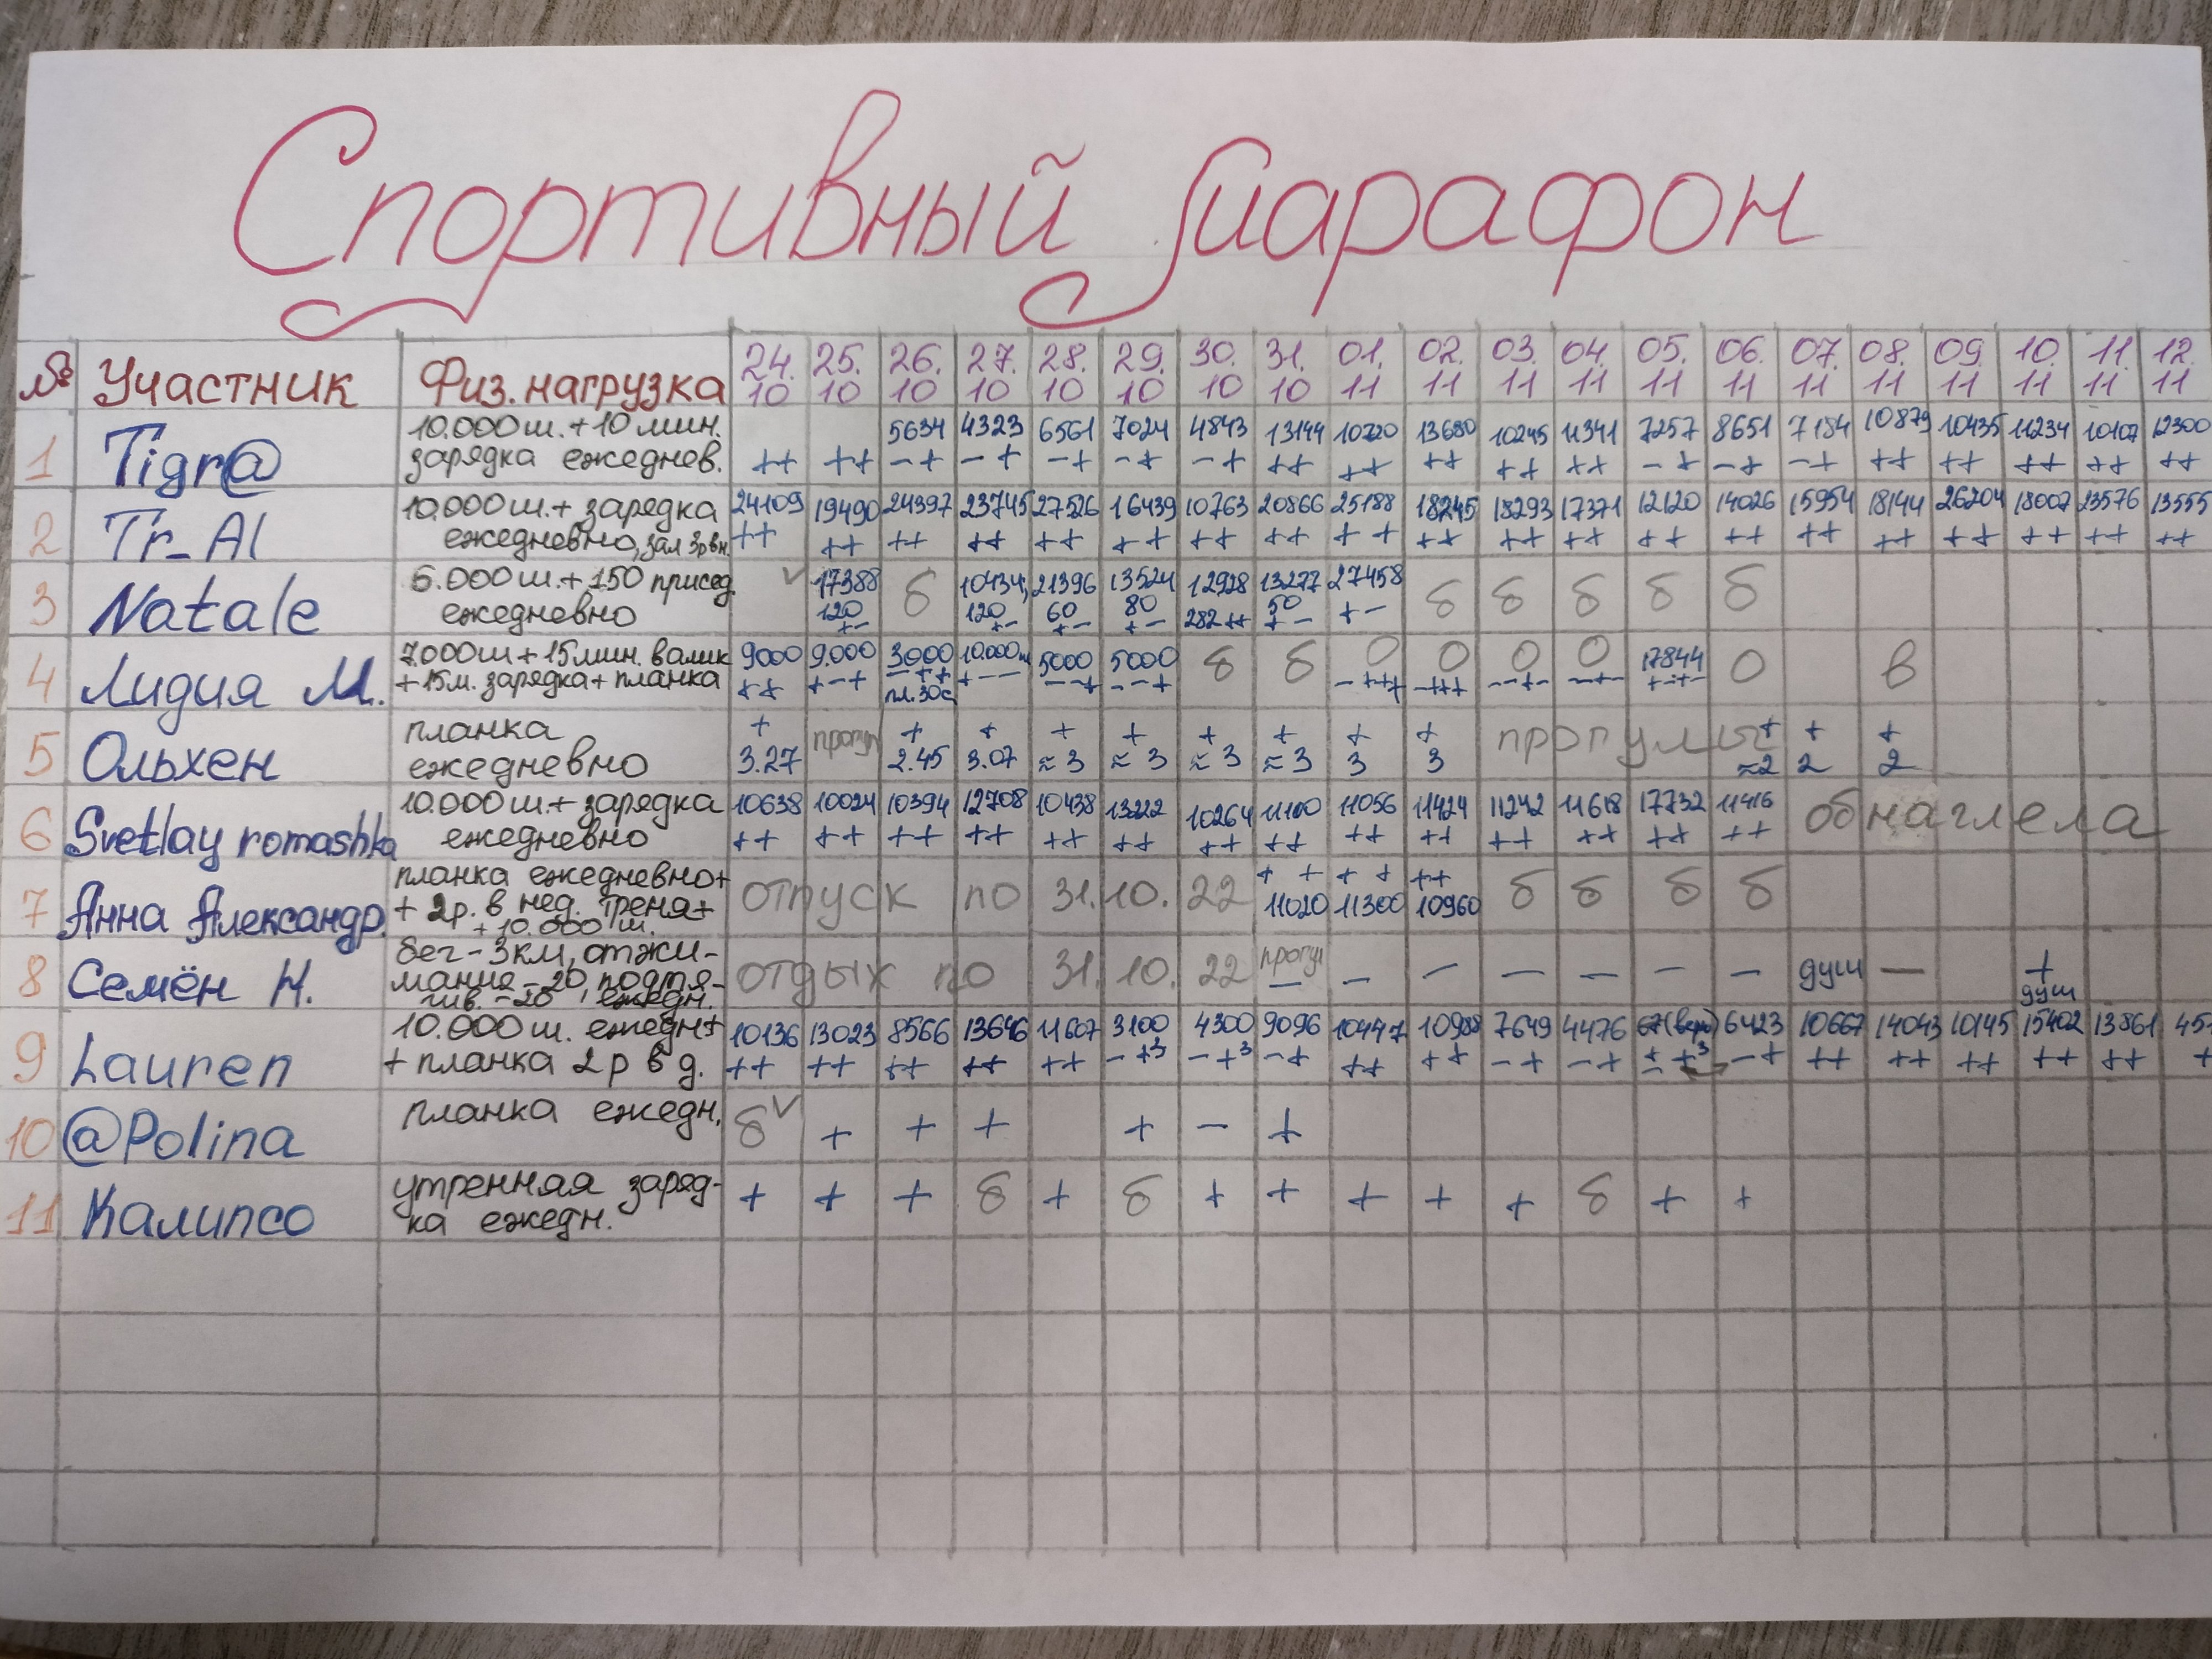 Спортивный марафон
№ Участник Физ. нагрузка 24. 25. 26. 27. 28. 29. 30. 31. 01. 02. 03. 04. 05. 06. 07. 08. 09. 10. 11. 12.
10 10 10 10 10 10 10 10 11 11 11 11 11 11 11 11 11 11 11 11
1 Tigr@ 10.000 ш. + 10 мин. 5634 4323 6561 7024 4843 13144 10720 13680 10245 11341 7257 8651 7184 10879 10435 11234 10107 12300
зарядка ежеднев. ++ ++ -+ -+ -+ -+ -+ ++ ++ ++ ++ ++ -+ -+ -+ ++ ++ ++ ++ ++
2 Tr_Al 10.000 ш. + зарядка 24109 19490 24397 23745 27526 16439 10763 20866 25188 18245 18293 17371 12120 14026 15954 18144 26204 18007 23576 13555
ежедневно, зал 3р вн. ++ ++ ++ ++ ++ ++ ++ ++ ++ ++ ++ ++ ++ ++ ++ ++ ++ ++ ++ ++
3 Natale 6.000 ш. + 150 присед. 17388 б 10434; 21396 13524 12928 13277 27458 б б б б б
ежедневно 120 120 60 80 282 ++ 50 +-
+- +- +- +- +-
4 Лидия М. 7.000 ш + 15 мин. валик 9000 9.000 3000 10.000ш 5000 5000 б б 0 0 0 0 17844 0 в
+ 15 м. зарядка + планка ++ +-+ -++ +-- --+ --+ -+++ -+++ --+- --+- +-+-
пл. 30с
5 Ольхен планка + прогул + + + + + + + + прогулы + + +
ежедневно 3.27 2.45 3.07 ≈3 ≈3 ≈3 ≈3 3 3 ≈2 2 2
6 Svetlay romashka 10.000 ш. + зарядка 10638 10024 10394 12708 10438 13222 10264 11100 11056 11424 11242 11618 17732 11416 обнаглела
ежедневно ++ ++ ++ ++ ++ ++ ++ ++ ++ ++ ++ ++ ++ ++
7 Анна Александр. планка ежедневно + отпуск по 31.10.22 ++ ++ ++ б б б б
+ 2р. в нед. треня + 11020 11300 10960
+ 10.000 ш.
8 Семён Н. бег - 3 км, отжи- отдых по 31.10.22 прогул - - - - - - душ - +
мания - 20, подтя- - душ
гив. - 20, ежедн.
9 Lauren 10.000 ш. ежедн + 10136 13023 8566 13646 11667 3100 4300 9096 10447 10988 7649 4476 67(вело) 6423 10667 14043 10145 15402 13861 45
+ планка 2 р в д. ++ ++ ++ ++ ++ -+3 -+3 -+ ++ ++ -+ -+ ++3 -+ ++ ++ ++ ++ ++ +
10 @Polina планка ежедн. б + + + + - +
11 Калипсо утренняя заряд- + + + б + б + + + + + б + +
ка ежедн.